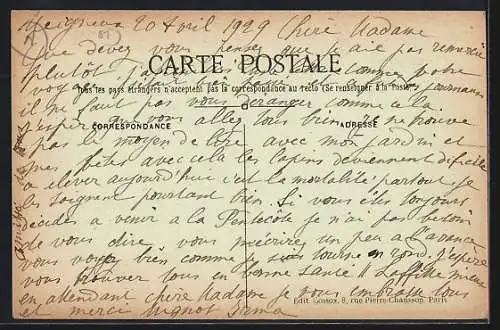 20 Avril 1929 Chère Madame
que devez vous penser que je aie pas remercié
plutôt j'ai
CARTE POSTALE
Tous les pays étrangers n'acceptent pas la correspondance au recto (Se renseigner à la Poste)
il ne faut pas vous déranger comme cela
j'espère que vous allez tous bien je ne trouve
CORRESPONDANCE
ADRESSE
pas le moyen de lire avec mon jardin et
mes bêtes avec cela les lapins deviennent difficile
a élever aujourd'hui c'est la mortalité partout je
les soignent pourtant bien. Si vous êtes toujours
décider a venir a la Pentecôte je n'ai pas besoin
de vous dire vous mécrirez un peu a l'avance
vous voyez bien comme je tourne en rond. J'espère
vous trouver tous en bonne santé
en attendant chère Madame je vous embrasse tous
et merci Mignot Irma
Edit. Gossox, 8, rue Pierre-Chausson, Paris